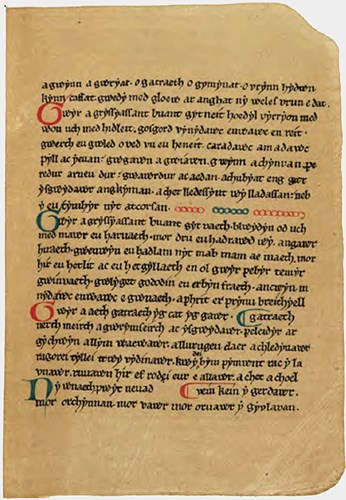 a gwynn a gwryat. o gatraeth o gymynat. o vrynn hydwn
kynn caffat. gwedy med gloew ar anghat ny weles vrun e dat.
Gwyr a gryssyassant buant gytneit. hoedyl vyrryon med
won uch med hidleit. gosgord vynydawc enwawc en reit.
gwerth eu gwled o ved vu eu heneit. caradawc a madawc
pyll ac yeuan. gwgawn a gwiawn. gwynn a chynvan. pe
redur arveu dur. gwawrdur ac aedan. achubyat eng gawr
ysgwydawr angkyman. a chet lledessynt wy lladassan. neb
y eu tymhyr nyt atcorsan.
Gwyr a gryssyassant buant gytvaeth. blwydyn od uch
med mawr eu harvaeth. mor dru eu hadrawd wy. angawr
hiraeth. gwenwyn eu hadlam nyt mab mam ae maeth. mor
hir eu hetlit ac eu hetgyllaeth en ol gwyr pebyr temyr
gwinvaeth. gwlyget gododin en erbyn fraeth. ancwyn my
nydawc enwawc e gwnaeth. a phrit er prynu breithyell
gatraeth.
Gwyr a aeth gatraeth yg cat yg gawr.
nerth meirch a gwrymseirch ac ysgwydawr. peleidyr ar
gychwyn a llym waewawr. a llurugeu claer a chledyvawr.
ragorei tyllei trwy vydinawr. kwydei bym pymwnt rac y la
vnawr. ruvawn hir ef rodei eur e allawr. a chet a choel
vein kein y gerdawr.
Ny wnaethpwyt neuad
mor orchynnan. mor vawr mor oruawr y gyvlavan.